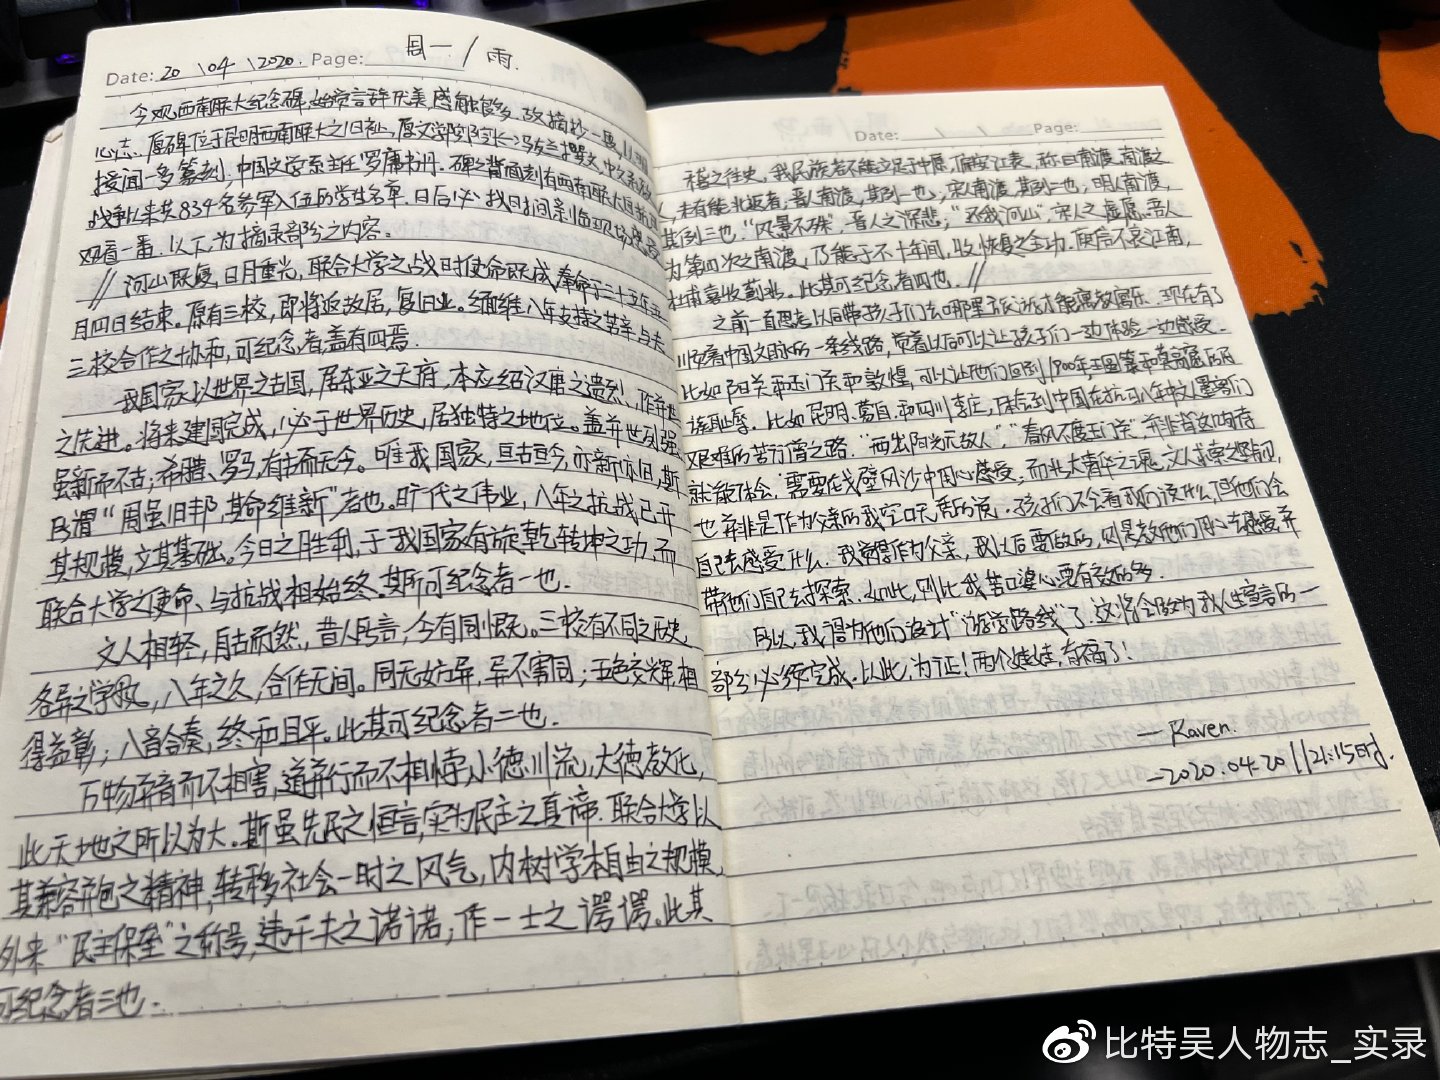 Date: 20 \04 \2020. Page: 周一 / 雨.
今观西南联大纪念碑,始觉言辞优美,感触良多,故摘抄一遍,以明
心志.原碑位于昆明西南联大之旧址,原文学院院长冯友兰撰文,中文系教
授闻一多篆刻,中国文学系主任罗庸书丹.碑之背面刻有西南联大自抗
战争以来共834名参军入伍的学生名单.日后必找时间亲临现场
观看一番.以下为摘录部分之内容.
// 河山既复,日月重光,联合大学之战时使命既成,奉命于三十五年五
月四日结束。原有三校,即将返故居,复旧业。缅维八年支持之苦辛,与夫
三校合作之协和,可纪念者,盖有四焉.
我国家以世界之古国,居东亚之天府,本应绍汉唐之遗烈,作并世
之先进。将来建国完成,必于世界历史,居独特之地位。盖并世列强,
虽新而不古;希腊、罗马,有古而无今。唯我国家,亘古亘今,亦新亦旧,斯
所谓“周虽旧邦,其命维新”者也。旷代之伟业,八年之抗战已开
其规模,立其基础。今日之胜利,于我国家有旋乾转坤之功,而
联合大学之使命、与抗战相始终.其所可纪念者一也.
文人相轻,自古而然,昔人所言,今有同慨.三校有不同之历史,
各异之学风,八年之久,合作无间。同无妨异,异不害同;五色交辉,相
得益彰;八音合奏,终和且平。此其可纪念者二也.
万物并育而不相害,道并行而不相悖,小德川流,大德敦化,
此天地之所以为大.斯虽先民之恒言,实为民主之真谛.联合大学以
其兼容并包之精神,转移社会一时之风气,内树学术自由之规模,
外来“民主堡垒”之称号,违千夫之诺诺,作一士之谔谔。此其
可纪念者三也.
稽之往史,我民族若不能立足于中原,偏安江表,称曰南渡.南渡之
人,未有能北返者:晋人南渡,其例一也;宋人南渡,其例二也;明人南渡,
其例三也.“风景不殊”,晋人之深悲;“还我河山”,宋人之虚愿.吾人
为第四次之南渡,乃能于不十年间,收恢复之全功.庾信不哀江南,
杜甫喜收蓟北。此其可纪念者四也. //
之前一直思考以后带孩子们去哪里旅游才能寓教寓乐.现在有了
顺着中国文脉的一条线路,觉着以后可以让孩子们一边体验一边感受.
比如阳关和玉门关和敦煌,可以让他们回到1900年王圆箓和莫高窟的
耻辱.比如昆明、蒙自、和四川李庄,体会到中国在抗日八年中文人墨客们
艰难的苦行僧之路.“西出阳关无故人”,“春风不度玉门关”,并非背数遍
就能体会,需要在戈壁风沙中用心感受,而北大清华之魂,文人求索之坚韧,
也并非是作为父亲的我空口无凭的说.孩子们不会看我们说什么,但他们会
自己去感受什么.我觉得作为父亲,我以后要做的,则是教他们用心去感受并
带他们自己去探索.如此,则比我苦口婆心要有效的多.
所以,我得为他们设计“游学路线”了.这将会成为我人生宣言的一
部分必须完成.以此,为证!两个娃娃,有福了!
— Raven.
—2020.04.20 // 21:15时.
Date: / / Page:
比特吴人物志_实录